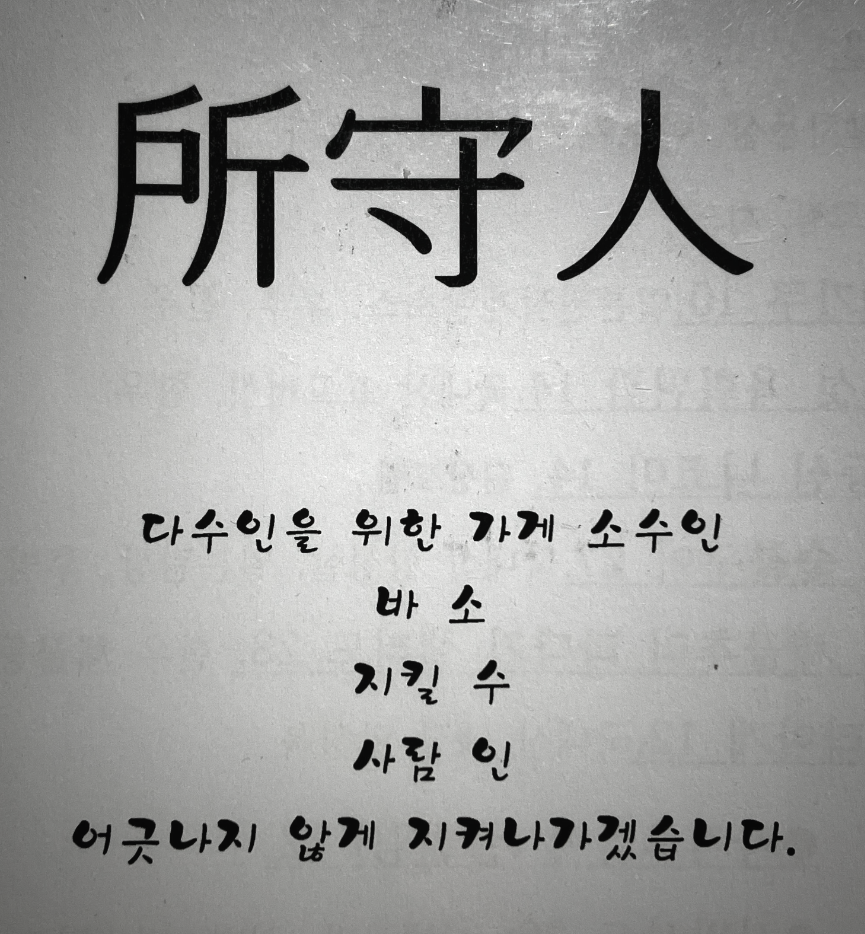 所守人
다수인을 위한 가게 소수인
바 소
지킬 수
사람 인
어긋나지 않게 지켜나가겠습니다.